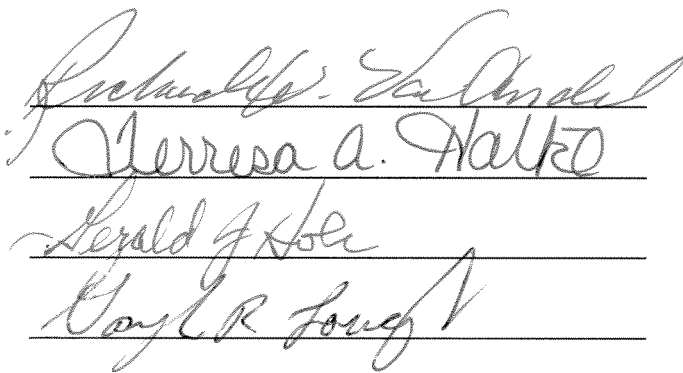 Richard W. Van Andel
Terresa A. Halko
Gerald J Hole
R Loney